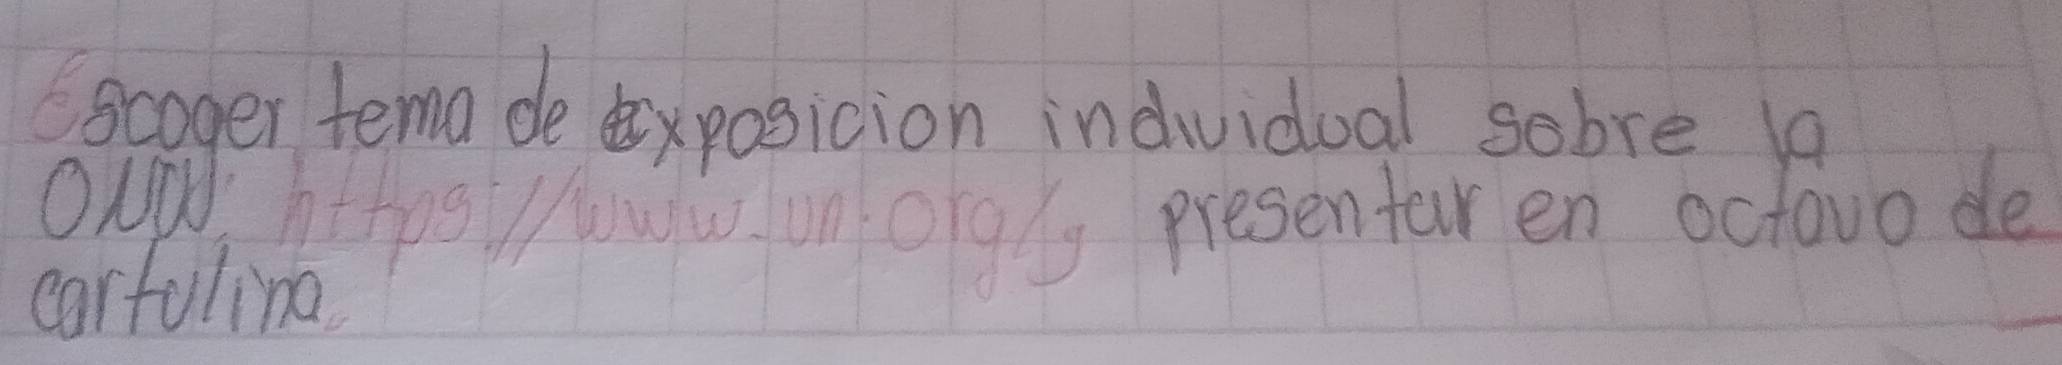 Escoger tema de exposicion individual sobre la
ONU: https://www.un.org/y presentar en octavo de
cartulina.